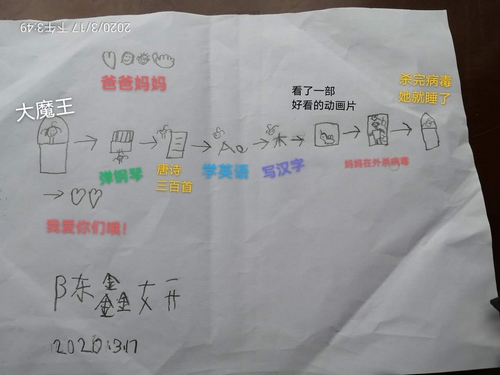 2020/3/17下午3:49
爸爸妈妈
大魔王
看了一部
好看的动画片
杀完病毒
她就睡了
Aa
木
弹钢琴
唐诗
三百首
学英语
写汉字
妈妈在外杀病毒
我爱你们哦!
陈鑫妍
2020.3.17